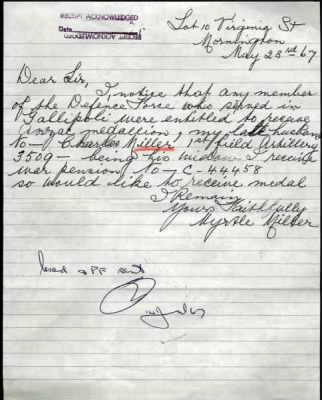 RECEIPT ACKNOWLEDGED
Date
RECEIPT ACKNOWLEDGED
Lot 10 Virginia St
Mornington
May 23rd 67
Dear Sir,
I notice that any member
of the Defence Force who served in
Gallipoli were entitled to receive
Anzac medallion, my late husband
No - Charles Miller, 1st Field Artillery
3509 - being his widow I receive
war pension No - C - 44458
so would like to receive medal
I Remain
Yours Faithfully
Myrtle Miller
sent